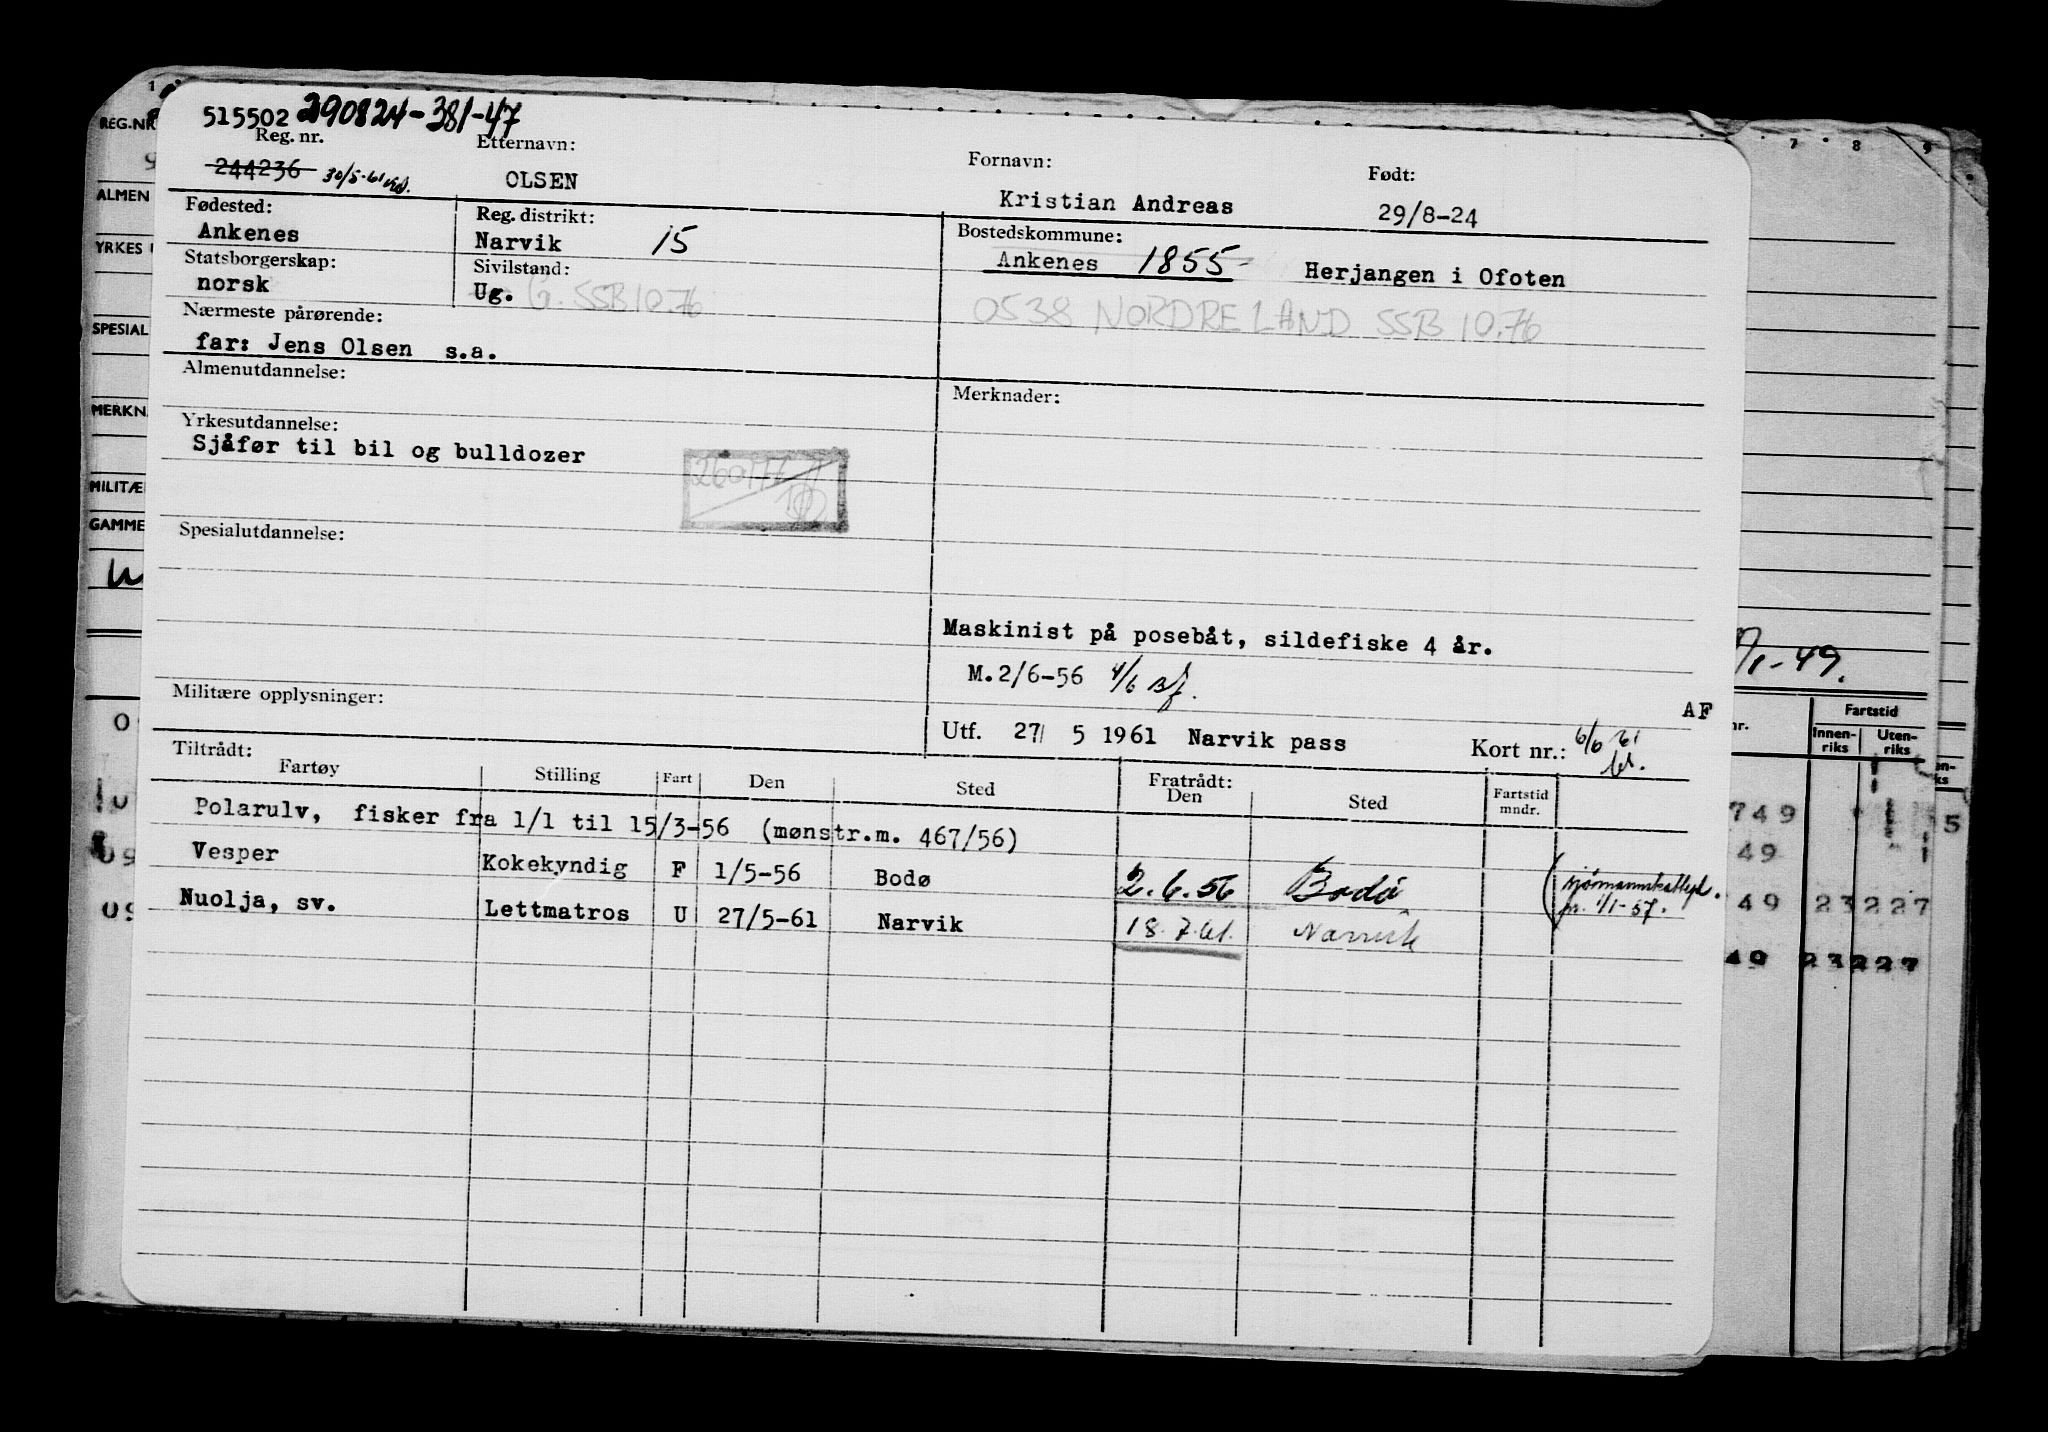 515502 290824-381-47
Reg. nr. Etternavn: Fornavn: Født:
244236 30/5-61 OLSEN Kristian Andreas 29/8-24
Fødested: Reg. distrikt: Bostedskommune:
Ankenes Narvik 15 Ankenes 1855 Herjangen i Ofoten
Statsborgerskap: Sivilstand:
norsk Ug. G. SSB 10.76 0538 NORDRE LAND SSB 10.76
Nærmeste pårørende:
far: Jens Olsen s.a.
Almenutdannelse: Merknader:
Yrkesutdannelse:
Sjåfør til bil og bulldozer
Spesialutdannelse:
Maskinist på posebåt, sildefiske 4 år.
M.2/6-56 4/6
Militære opplysninger: AF
Utf. 27 5 1961 Narvik pass Kort nr.: 6/6 61
Tiltrådt: Fratrådt:
Fartøy Stilling Fart Den Sted Den Sted Fartstid mndr.
Polarulv, fisker fra 1/1 til 15/3-56 (mønstr.m. 467/56)
Vesper Kokekyndig F 1/5-56 Bodø 2.6.56 Bodø
Nuolja, sv. Lettmatros U 27/5-61 Narvik 18.7.61. Narvik
1/1-57.
REG.NR
ALMEN
YRKES
SPESIAL
MERKN
MILITÆ
GAMME
7 8 9
1-49.
nr. Fartstid
Innen-riks Uten-riks
749
49
49 23 227
49 23 227